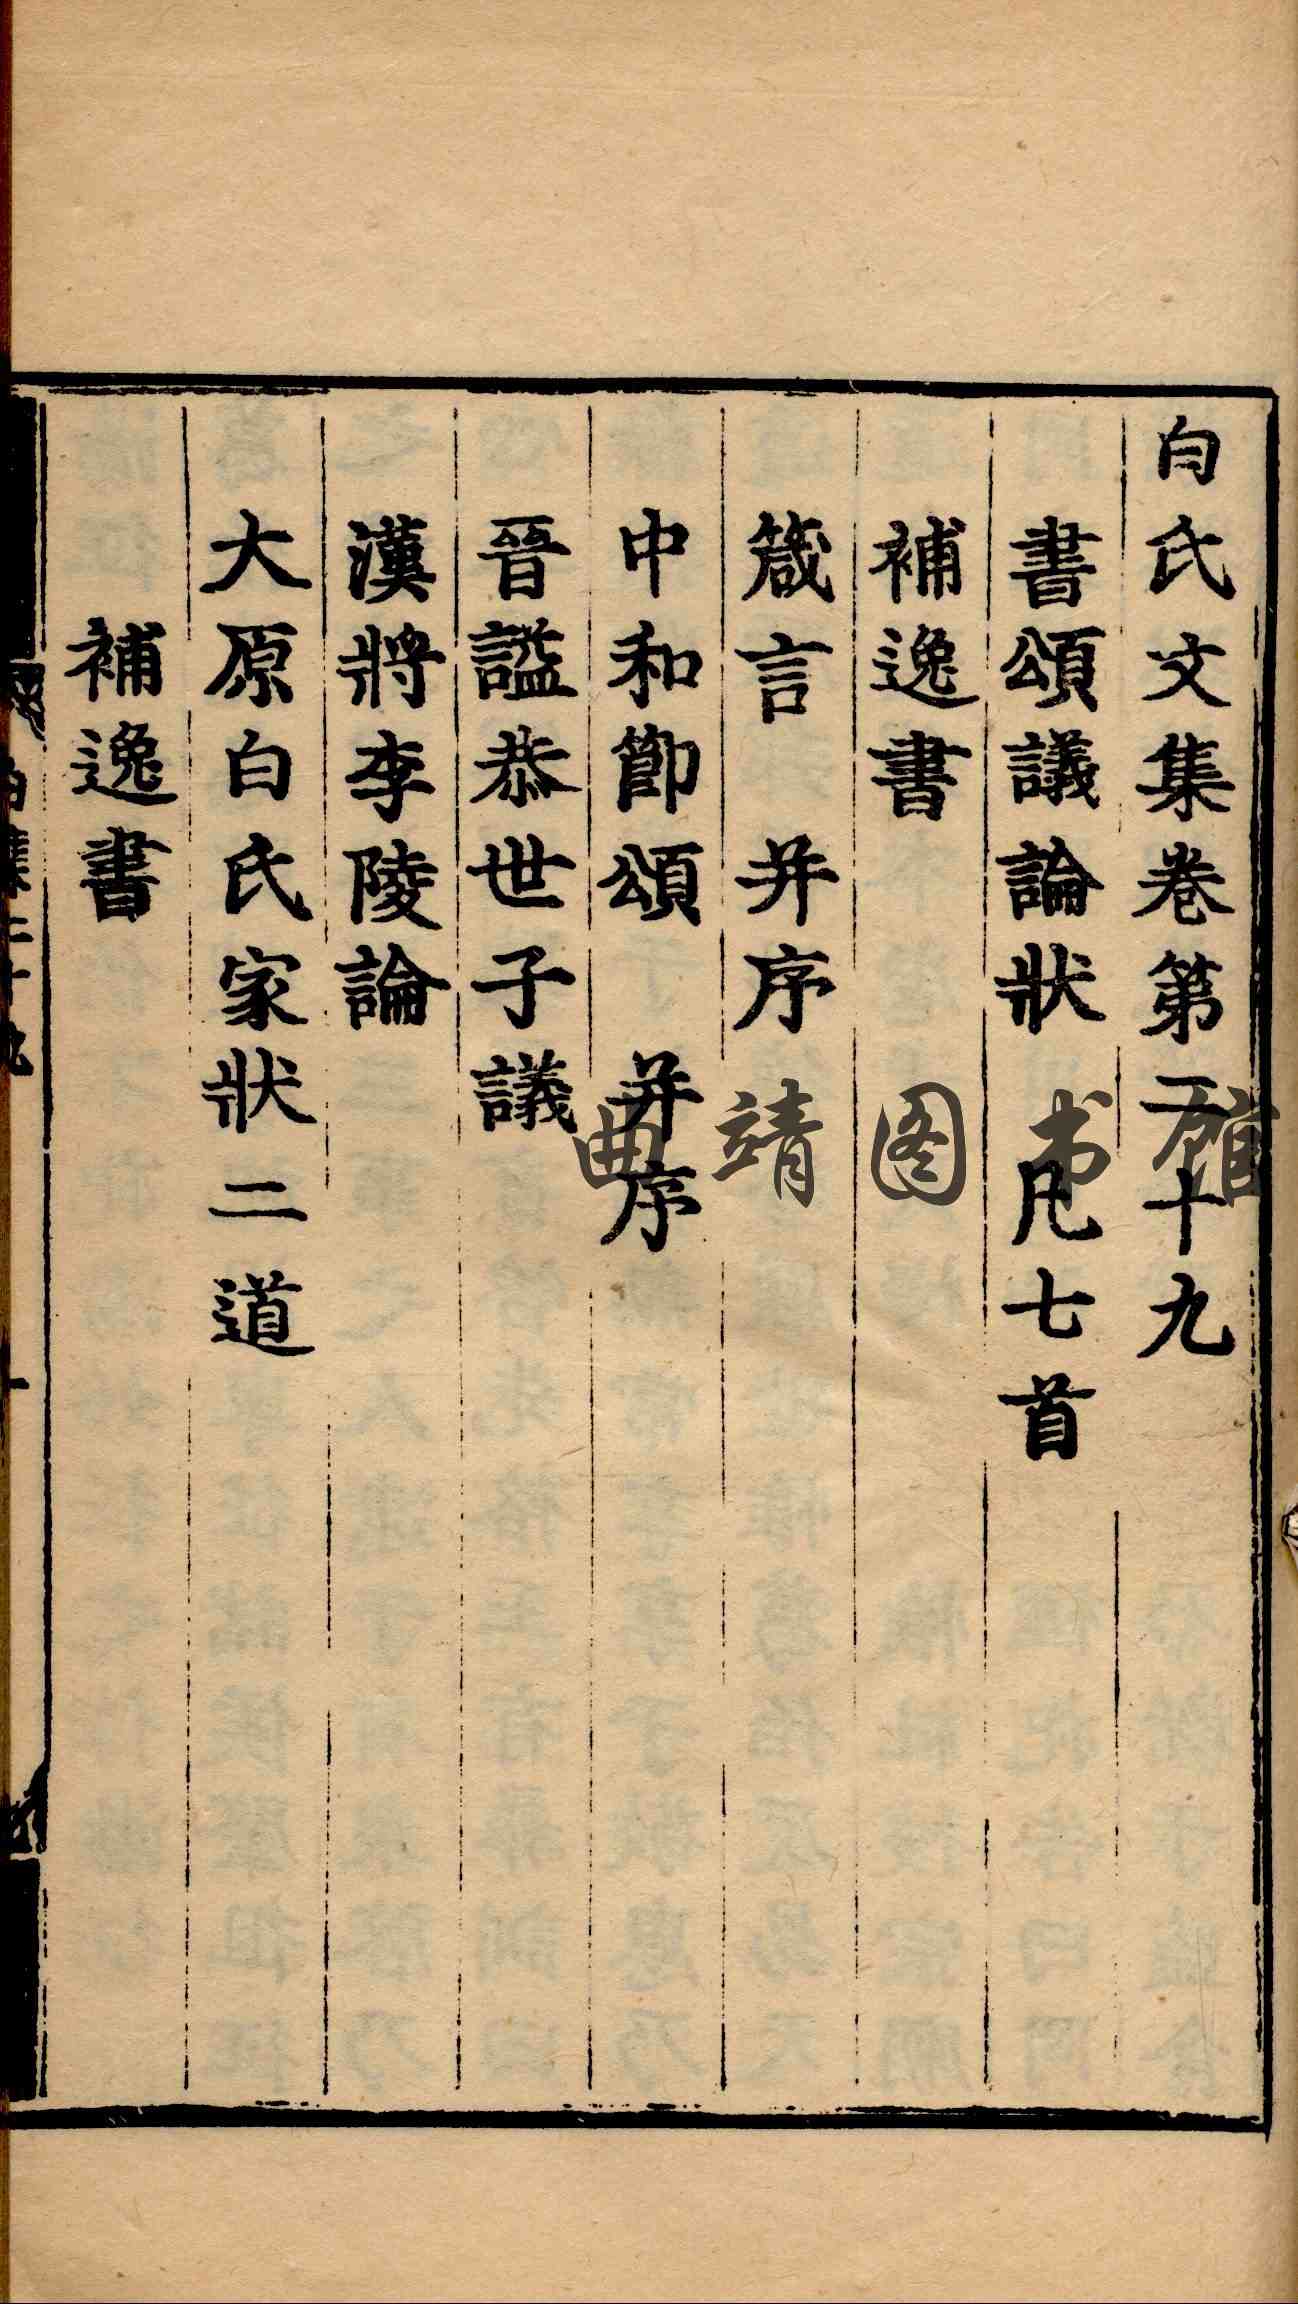 白氏文集卷第二十九
書頌議論狀 凡七首
補逸書
箴言 并序
中和節頌 并序
晉謚恭世子議
漢將李陵論
大原白氏家狀二道
補逸書
曲靖图书馆